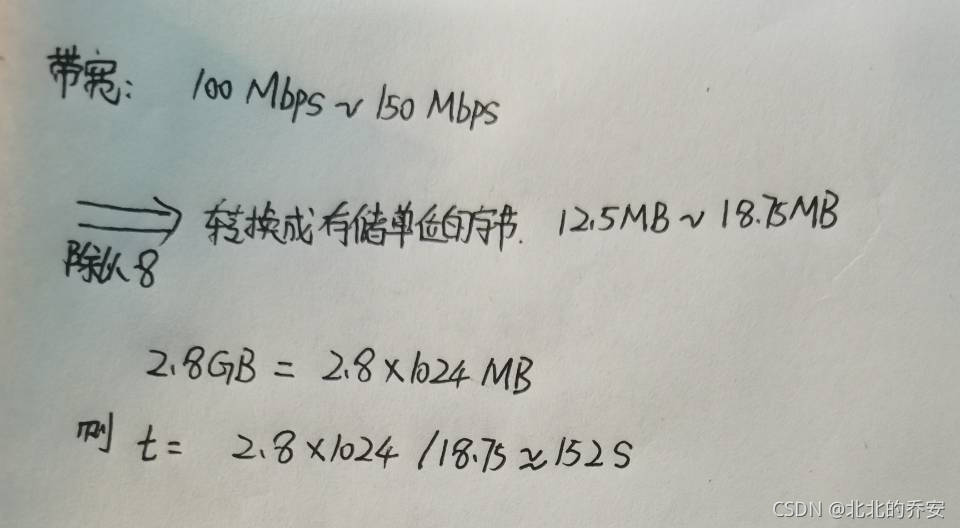 带宽: 100 Mbps ~ 150 Mbps
转换成存储单位的字节. 12.5MB ~ 18.75MB
除以 8
2.8GB = 2.8×1024 MB
则 t = 2.8×1024 /18.75 ≈ 152 S
CSDN @北北的乔安